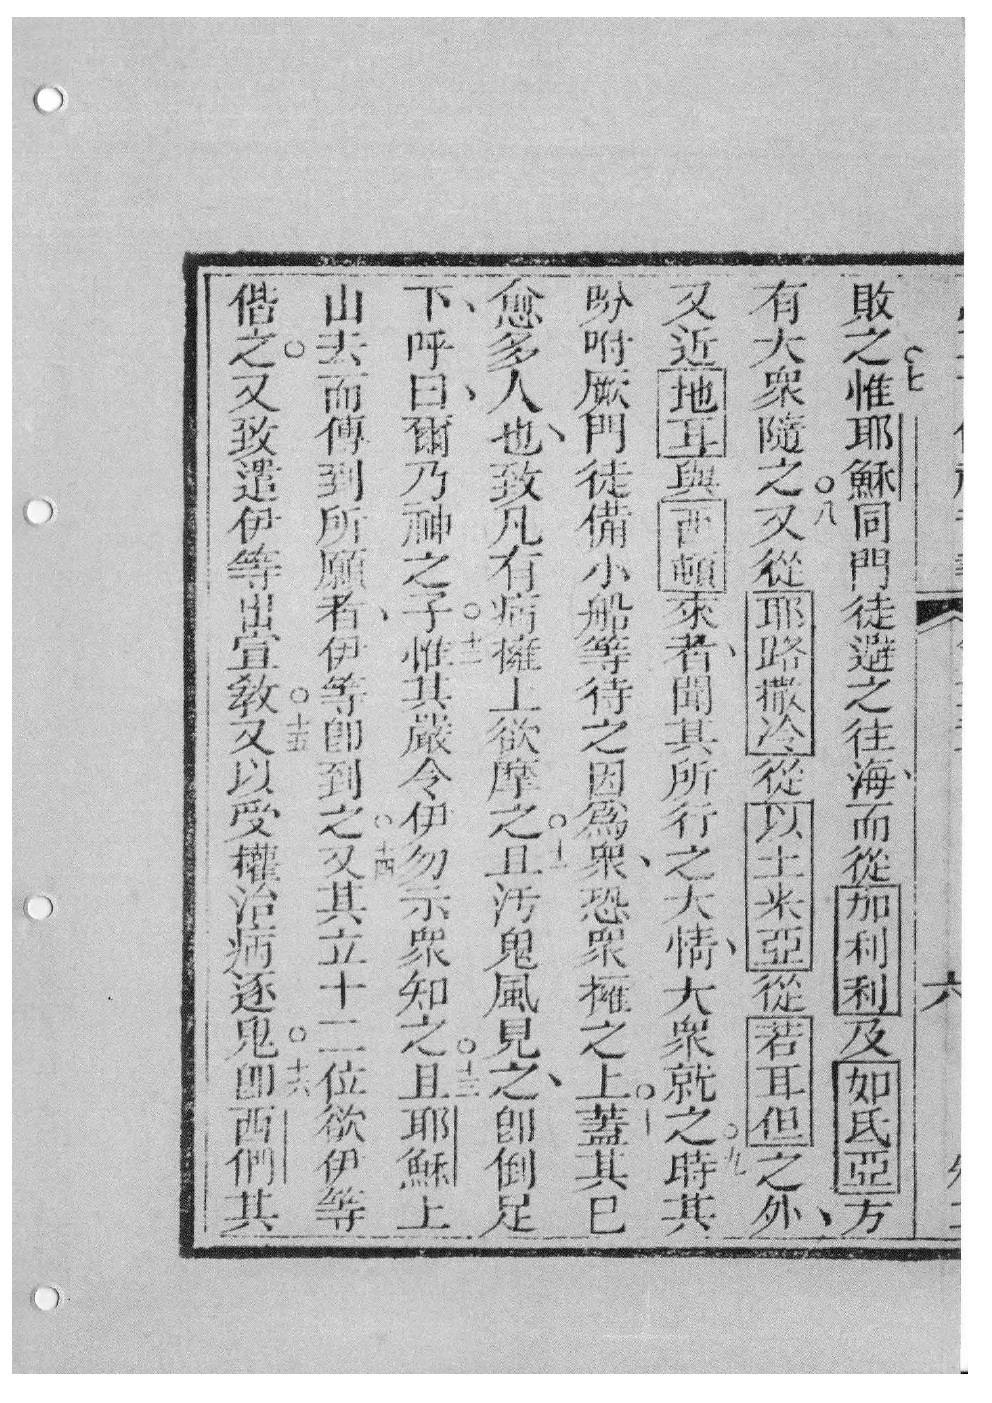 敗之惟耶穌同門徒避之往海、而從加利利及如氐亞方
有大衆隨之○八又從耶路撒冷從以土米亞從若耳但之外、
又近地耳與西頓來者、聞其所行之大情、大衆就之○九時其
吩咐厥門徒備小船等待之因爲衆、恐衆擁之上○十蓋其已
愈多人也、致凡有病擁上欲摩之○十一且汚鬼風見之、卽倒足
下、呼曰、爾乃神之子○十二惟其嚴令伊勿示衆知之○十三且耶穌上
山去而傳到所願者、伊等卽到之○十四又其立十二位欲伊等
偕之○又致遣伊等出宣敎○十五又以受權治病逐鬼○十六卽西們其
六